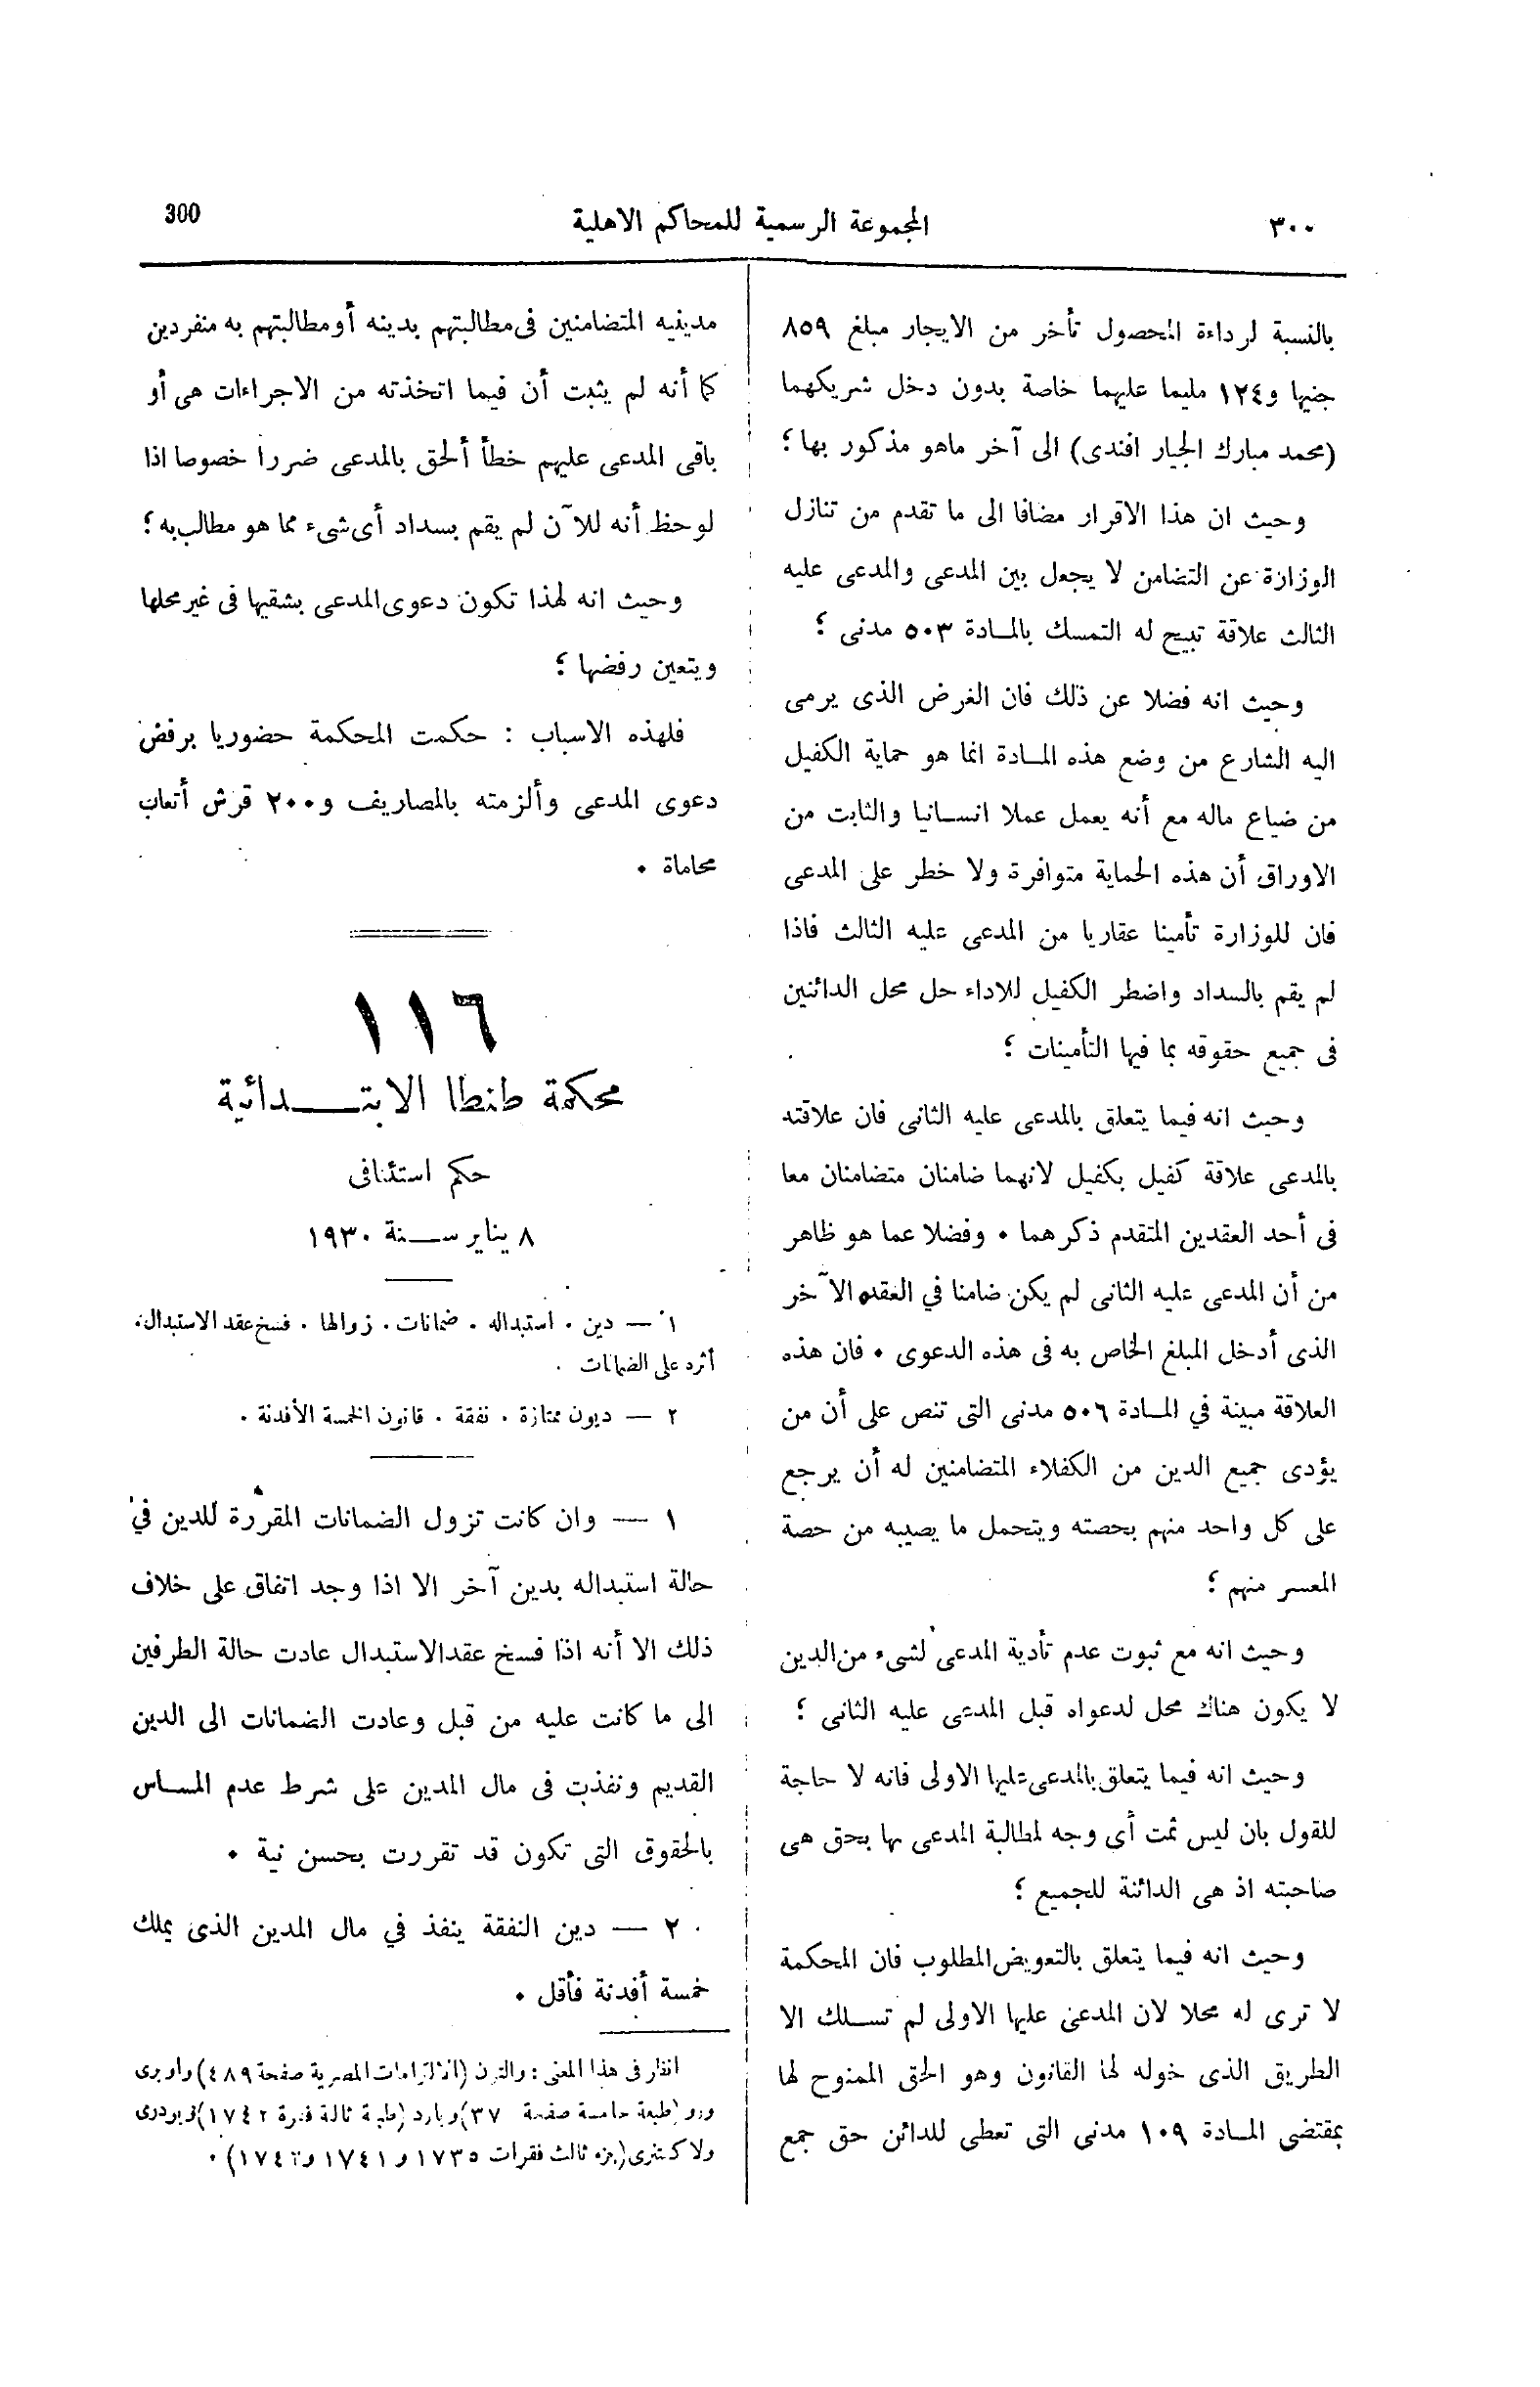 ٣٠٠
المجموعة الرسمية للمحاكم الاهلية
300
بالنسبة لرداءة المحصول تأخر من الايجار مبلغ ٨٥٩
جنيها و١٢٤ مليما عليهما خاصة بدون دخل شريكهما
(محمد مبارك الجيار افندى) الى آخر ماهو مذكور بها ؛
وحيث ان هذا الاقرار مضافا الى ما تقدم من تنازل
الوزارة عن التضامن لا يجعل بين المدعى والمدعى عليه
الثالث علاقة تبيح له التمسك بالمادة ٥٠٣ مدنى ؛
وحيث انه فضلا عن ذلك فان الغرض الذى يرمى
اليه الشارع من وضع هذه المادة انما هو حماية الكفيل
من ضياع ماله مع أنه يعمل عملا انسانيا والثابت من
الاوراق أن هذه الحماية متوافرة ولا خطر على المدعى
فان للوزارة تأمينا عقاريا من المدعى عليه الثالث فاذا
لم يقم بالسداد واضطر الكفيل للاداء حل محل الدائنين
فى جميع حقوقه بما فيها التأمينات ؛
وحيث انه فيما يتعلق بالمدعى عليه الثانى فان علاقته
بالمدعى علاقة كفيل بكفيل لانهما ضامنان متضامنان معا
فى أحد العقدين المتقدم ذكرهما ٠ وفضلا عما هو ظاهر
من أن المدعى عليه الثانى لم يكن ضامنا في العقد الآخر
الذى أدخل المبلغ الخاص به فى هذه الدعوى ٠ فان هذه
العلاقة مبينة في المادة ٥٠٦ مدنى التى تنص على أن من
يؤدى جميع الدين من الكفلاء المتضامنين له أن يرجع
على كل واحد منهم بحصته ويتحمل ما يصيبه من حصة
المعسر منهم ؛
وحيث انه مع ثبوت عدم تأدية المدعى لشىء من الدين
لا يكون هناك محل لدعواه قبل المدعى عليه الثانى ؛
وحيث انه فيما يتعلق بالمدعى عليها الاولى فانه لا حاجة
للقول بان ليس ثمت أى وجه لمطالبة المدعى بها بحق هى
صاحبته اذ هى الدائنة للجميع ؛
وحيث انه فيما يتعلق بالتعويض المطلوب فان المحكمة
لا ترى له محلا لان المدعى عليها الاولى لم تسلك الا
الطريق الذى خوله لها القانون وهو الحق الممنوح لها
بمقتضى المادة ١٠٩ مدنى التى تعطى للدائن حق جمع
مدينيه المتضامنين فى مطالبتهم بدينه أو مطالبتهم به منفردين
كما أنه لم يثبت أن فيما اتخذته من الاجراءات هى أو
باقى المدعى عليهم خطأ ألحق بالمدعى ضررا خصوصا اذا
لوحظ أنه للآن لم يقم بسداد أى شىء مما هو مطالب به ؛
وحيث انه لهذا تكون دعوى المدعى بشقيها فى غير محلها
ويتعين رفضها ؛
فلهذه الاسباب : حكمت المحكمة حضوريا برفض
دعوى المدعى وألزمته بالمصاريف و٢٠٠ قرش أتعاب
محاماة ٠
١١٦
محكمة طنطا الابتدائية
حكم استئنافى
٨ يناير سنة ١٩٣٠
١ — دين ٠ استبداله ٠ ضمانات ٠ زوالها ٠ فسخ عقد الاستبدال ٠
أثره على الضمانات ٠
٢ — ديون ممتازة ٠ نفقة ٠ قانون الخمسة الأفدنة ٠
١ — وان كانت تزول الضمانات المقررة للدين في
حالة استبداله بدين آخر الا اذا وجد اتفاق على خلاف
ذلك الا أنه اذا فسخ عقد الاستبدال عادت حالة الطرفين
الى ما كانت عليه من قبل وعادت الضمانات الى الدين
القديم ونفذت فى مال المدين على شرط عدم المساس
بالحقوق التى تكون قد تقررت بحسن نية ٠
٢ — دين النفقة ينفذ في مال المدين الذى يملك
خمسة أفدنة فأقل ٠
انظر فى هذا المعنى : والتون (الالتزامات المصرية صفحة ٤٨٩) واوبرى
ورو (طبعة خامسة صفحة ٣٧) وبارد (طبعة ثالثة فقرة ١٧٤٢) وبودرى
ولا كنترى (جزء ثالث فقرات ١٧٣٥ و ١٧٤١ و ) ٠